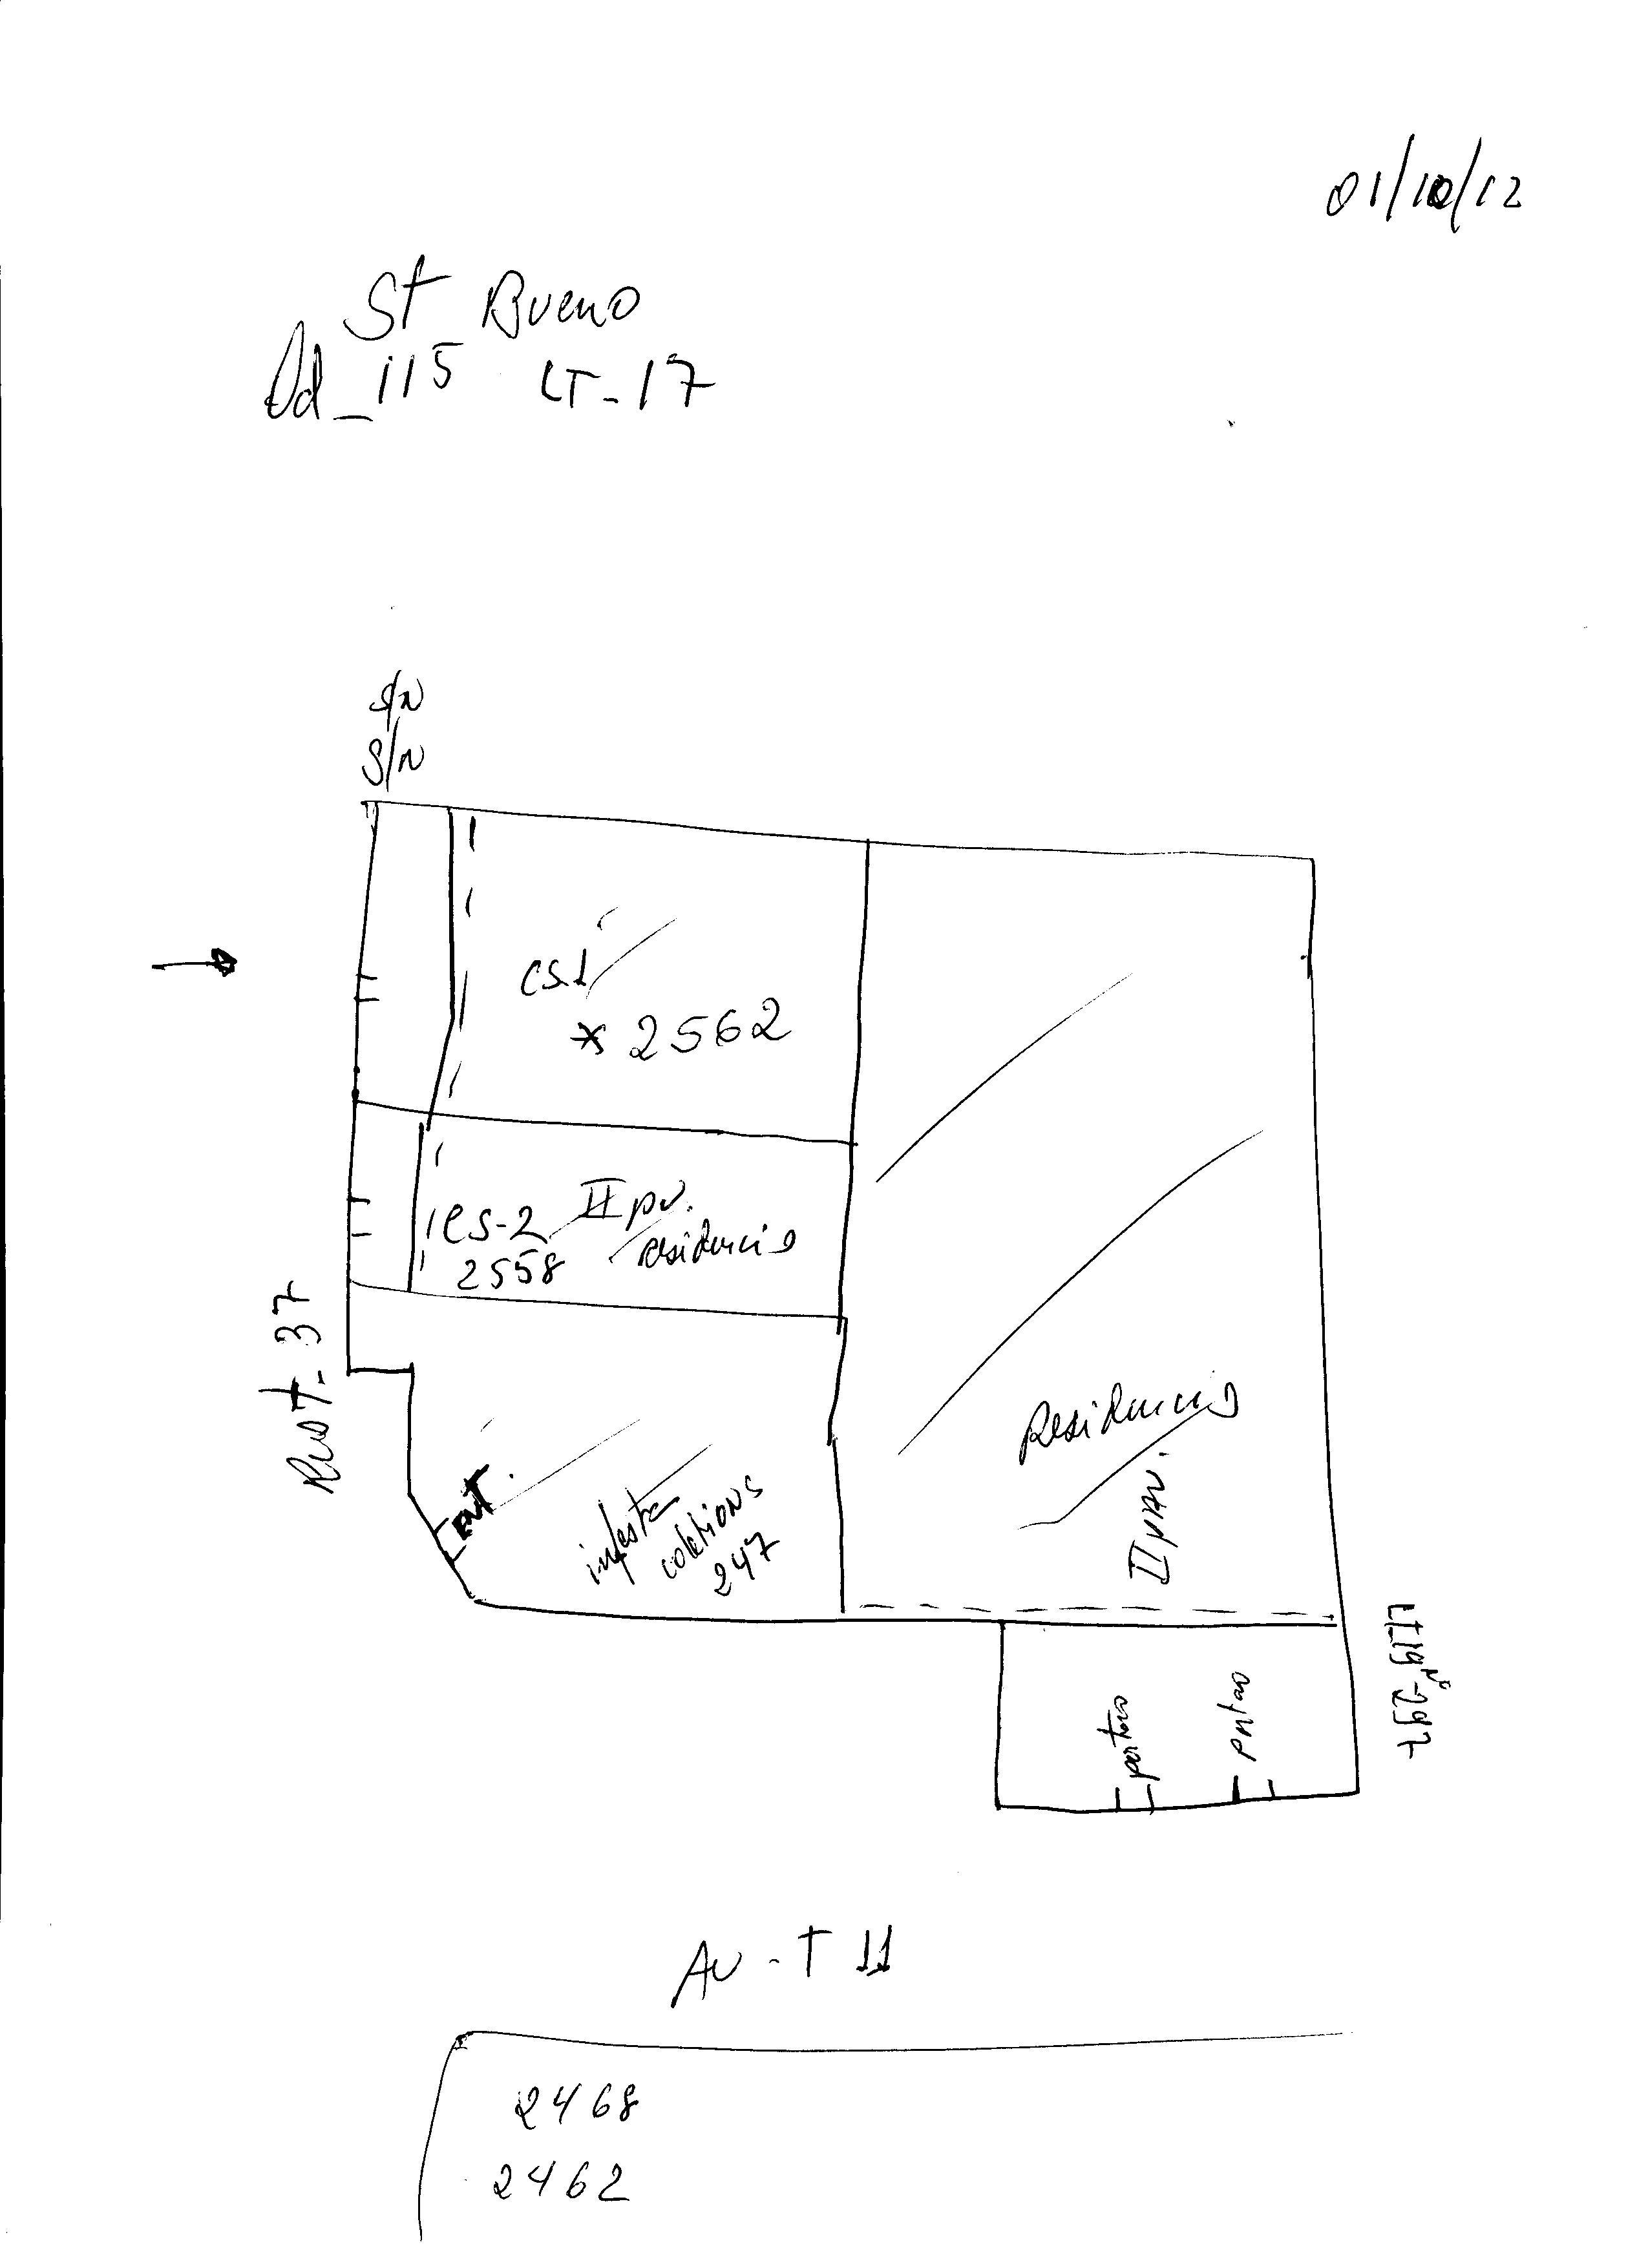 01/10/12
St Bueno
Qd_115 LT-17
S/N
S/N
cs.1
* 2562
CS-2 II pv.
2558 residencia
Rua T-37
ENT.
colchions
247
Residencia
II pav.
LT_19 Nº-297
portao
portao
Av-T 11
2468
2462